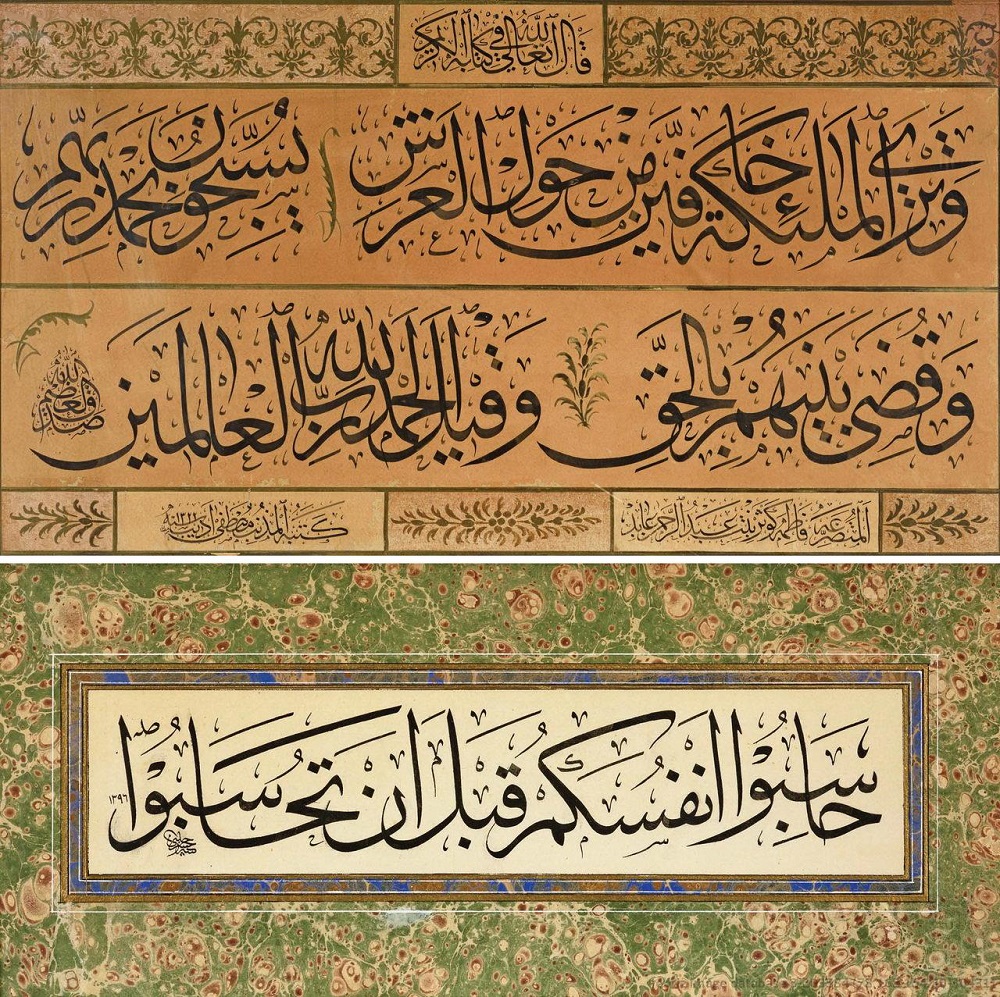 قال الله تعالى في كتابه الكريم
وَتَرَى الْمَلٰئِكَةَ حَافِّينَ مِنْ حَوْلِ الْعَرْشِ يُسَبِّحُونَ بِحَمْدِ رَبِّهِمْ
وَقُضِيَ بَيْنَهُمْ بِالْحَقِّ وَقِيلَ الْحَمْدُ لِلّٰهِ رَبِّ الْعَالَمِينَ
صدق الله العظيم
فاطمة كوثر بنت عبد الرحمن عابد
كتبه المذنب مصطفى أديب سنه ١٣٢٢
حَاسِبُوا اَنْفُسَكُمْ قَبْلَ اَنْ تُحَاسَبُوا
١٣٩٦